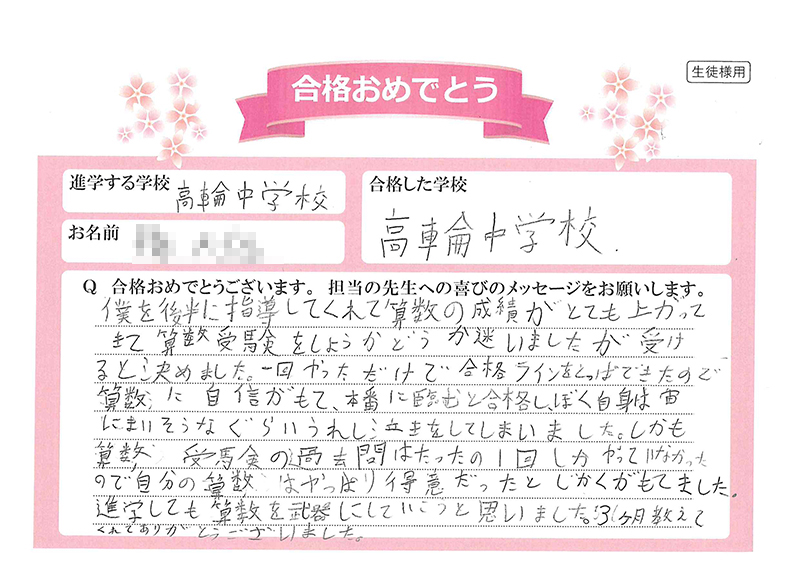 合格おめでとう
生徒様用
進学する学校 高輪中学校
合格した学校
高輪中学校.
お名前
Q 合格おめでとうございます。担当の先生への喜びのメッセージをお願いします。
僕を後半に指導してくれて算数の成績がとても上がって
きて算数受験をしようかどうか迷いましたが受け
ると決めました。一回やっただけで合格ラインをとっぱできたので
算数に自信がもて、本番に臨むと合格し、ぼく自身は宙
にまいそうなぐらいうれし泣きをしてしまいました。しかも
算数受験の過去問はたったの1回しかやっていなかった
ので自分の算数はやっぱり得意だったとじかくがもてました。
進学しても算数を武器にしていこうと思いました。3ヶ月教えて
くれてありがとうございました。